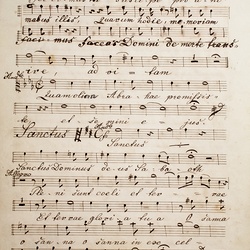 mabus illas, Quarum hodie memoriam
facimus fac eas Domini de morte trans-
ire, ad vi - tam
quam olim Abra - hae promisis -
te et semini e - jus.
Sanctus
Sanctus
Sanctus Dominus de us Sa - ba oth
Allegro
Ple - ni sunt coeli et ter - rae
Et terrae glori - a tu a O sanna
o san - na o sanna in ex - cel -